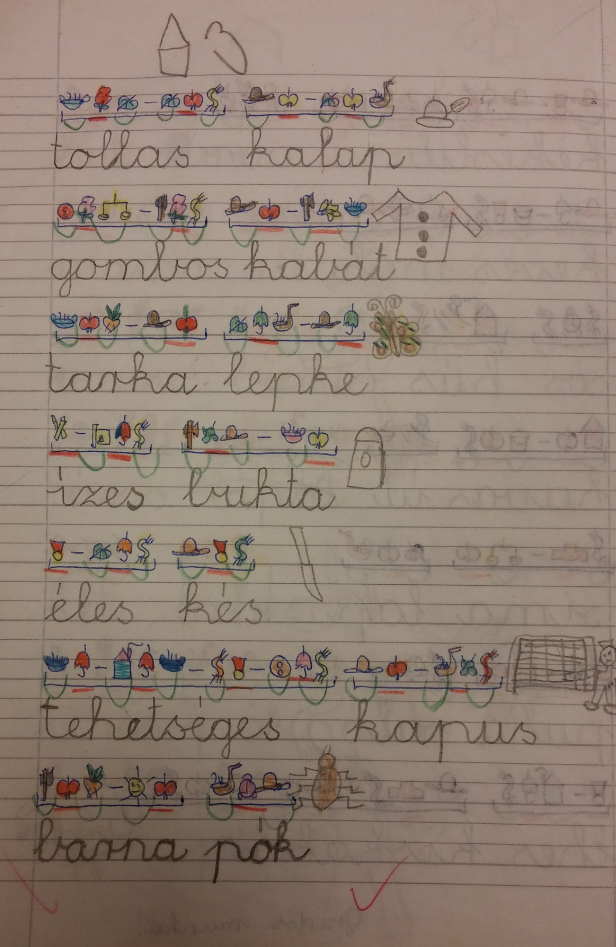 tollas kalap
gombos kabát
tarka lepke
ízes bukta
éles kés
tehetséges kapus
barna pók